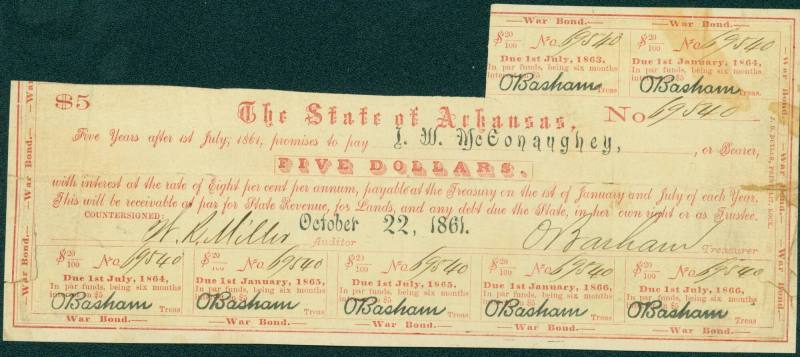 War Bond. War Bond.
$20/100 No. 69540 $20/100 No. 69540
Due 1st July, 1863, Due 1st January, 1864,
In par funds, being six months In par funds, being six months
interest on $5 interest on $5
O Basham Treas O Basham Treas
$5 The State of Arkansas, No 69540
Five Years after 1st July, 1861, promises to pay J. W. McConaughey, , or Bearer,
FIVE DOLLARS,
with interest at the rate of Eight per cent per annum, payable at the Treasury on the 1st of January and July of each Year.
This will be receivable at par for State Revenue, for Lands, and any debt due the State, in her own right or as Trustee.
COUNTERSIGNED:
W. R. Miller October 22, 1861. O Basham
Auditor Treasurer
$20/100 No. 69540 $20/100 No. 69540 $20/100 No. 69540 $20/100 No. 69540 $20/100 No. 69540
Due 1st July, 1864, Due 1st January, 1865, Due 1st July, 1865, Due 1st January, 1866, Due 1st July, 1866,
In par funds, being six months In par funds, being six months In par funds, being six months In par funds, being six months In par funds, being six months
interest on $5 interest on $5 interest on $5 interest on $5 interest on $5
O Basham Treas O Basham Treas O Basham Treas O Basham Treas O Basham Treas
War Bond. War Bond. War Bond. War Bond. War Bond.
War Bond.—War Bond.—War
War Bond.—War Bond.—War Bond.